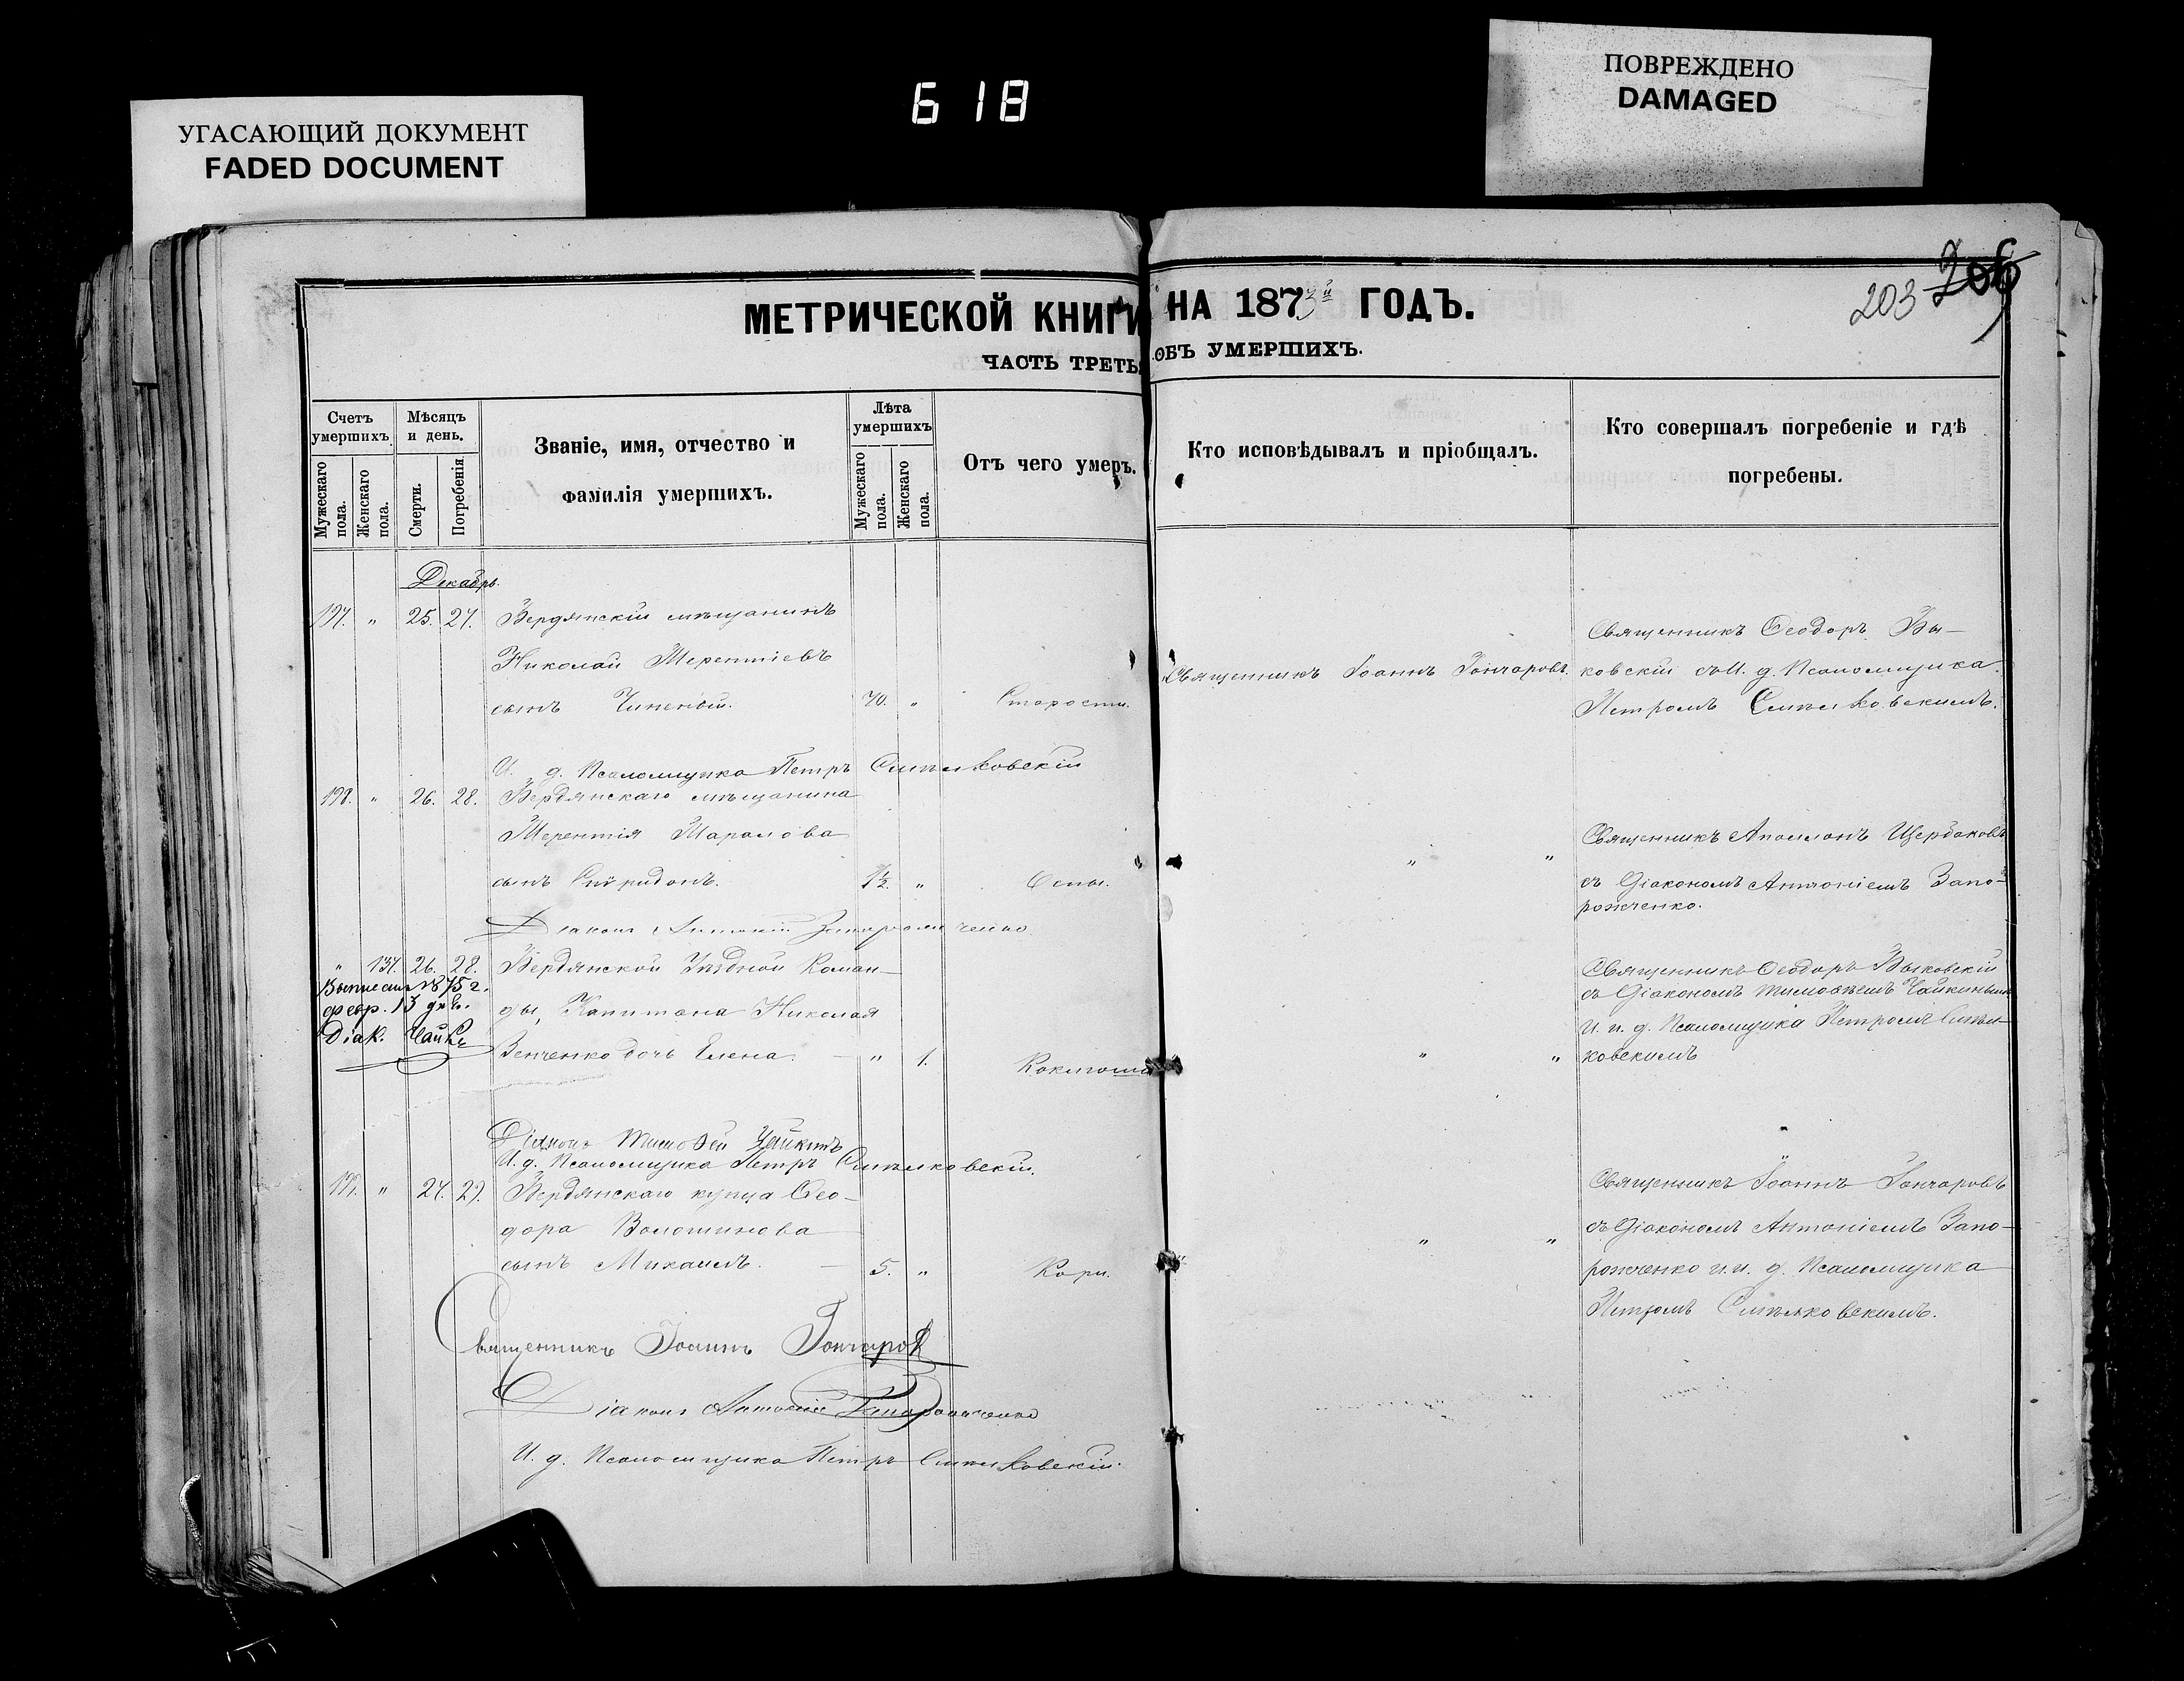 УГАСАЮЩИЙ ДОКУМЕНТ
FADED DOCUMENT
618
ПОВРЕЖДЕНО
DAMAGED
МЕТРИЧЕСКОЙ КНИГИ НА 1873й ГОДЪ.
203 206
ЧАСТЬ ТРЕТЬЯ ОБЪ УМЕРШИХЪ.
Счетъ умершихъ.
Мужескаго пола.
Женскаго пола.
Мѣсяцъ и день.
Смерти.
Погребенія
Званіе, имя, отчество и
фамилія умершихъ.
Лѣта умершихъ
Мужескаго пола.
Женскаго пола.
Отъ чего умеръ.
Кто исповѣдывалъ и пріобщалъ.
Кто совершалъ погребеніе и гдѣ
погребены.
Декабрь.
197. " 25. 27. Бердянскій мѣщанинъ
Николай Терентіевъ
сынъ 70. " Старости.
Священникъ Іоаннъ Гончаровъ.
Священникъ Ѳеодоръ Вы-
ковскій съ И. д. Псаломщика
Петромъ Смѣлковскимъ.
И. д. Псаломщика Петръ Смѣлковскій
198. " 26. 28. Бердянскаго мѣщанина
Терентія
сынъ Спиридонъ. 1½. " Оспы.
" "
Священникъ Аполлонъ Щербаковъ
съ Діакономъ Антоніемъ Запо-
рожченко.
Діаконъ Антоній Запорожченко
" 137. 26. 28. Бердянской Уѣздной Коман-
ды, Капитана Николая
Зенченко дочь Елена. " 1. Коклюша
Выписан 1875 г.
февр. 13 дня.
Діак. Чайк
" "
Священникъ Ѳеодоръ Выковскій
съ Діакономъ Тимоѳеемъ Чайкинымъ
и и. д. Псаломщика Петромъ Смѣл-
ковскимъ
Діаконъ Тимоѳей Чайкинъ
И. д. Псаломщика Петръ Смѣлковскій.
199. " 27. 29. Бердянскаго купца Ѳео-
дора Волошинова
сынъ Михаилъ. 5. " Кори.
" "
Священникъ Іоаннъ Гончаровъ
съ Діакономъ Антоніемъ Запо-
рожченко и и. д. Псаломщика
Петромъ Смѣлковскимъ.
Священникъ Іоаннъ Гончаровъ
Діаконъ Антоній Запорожченко
И. д. Псаломщика Петръ Смѣлковскій.